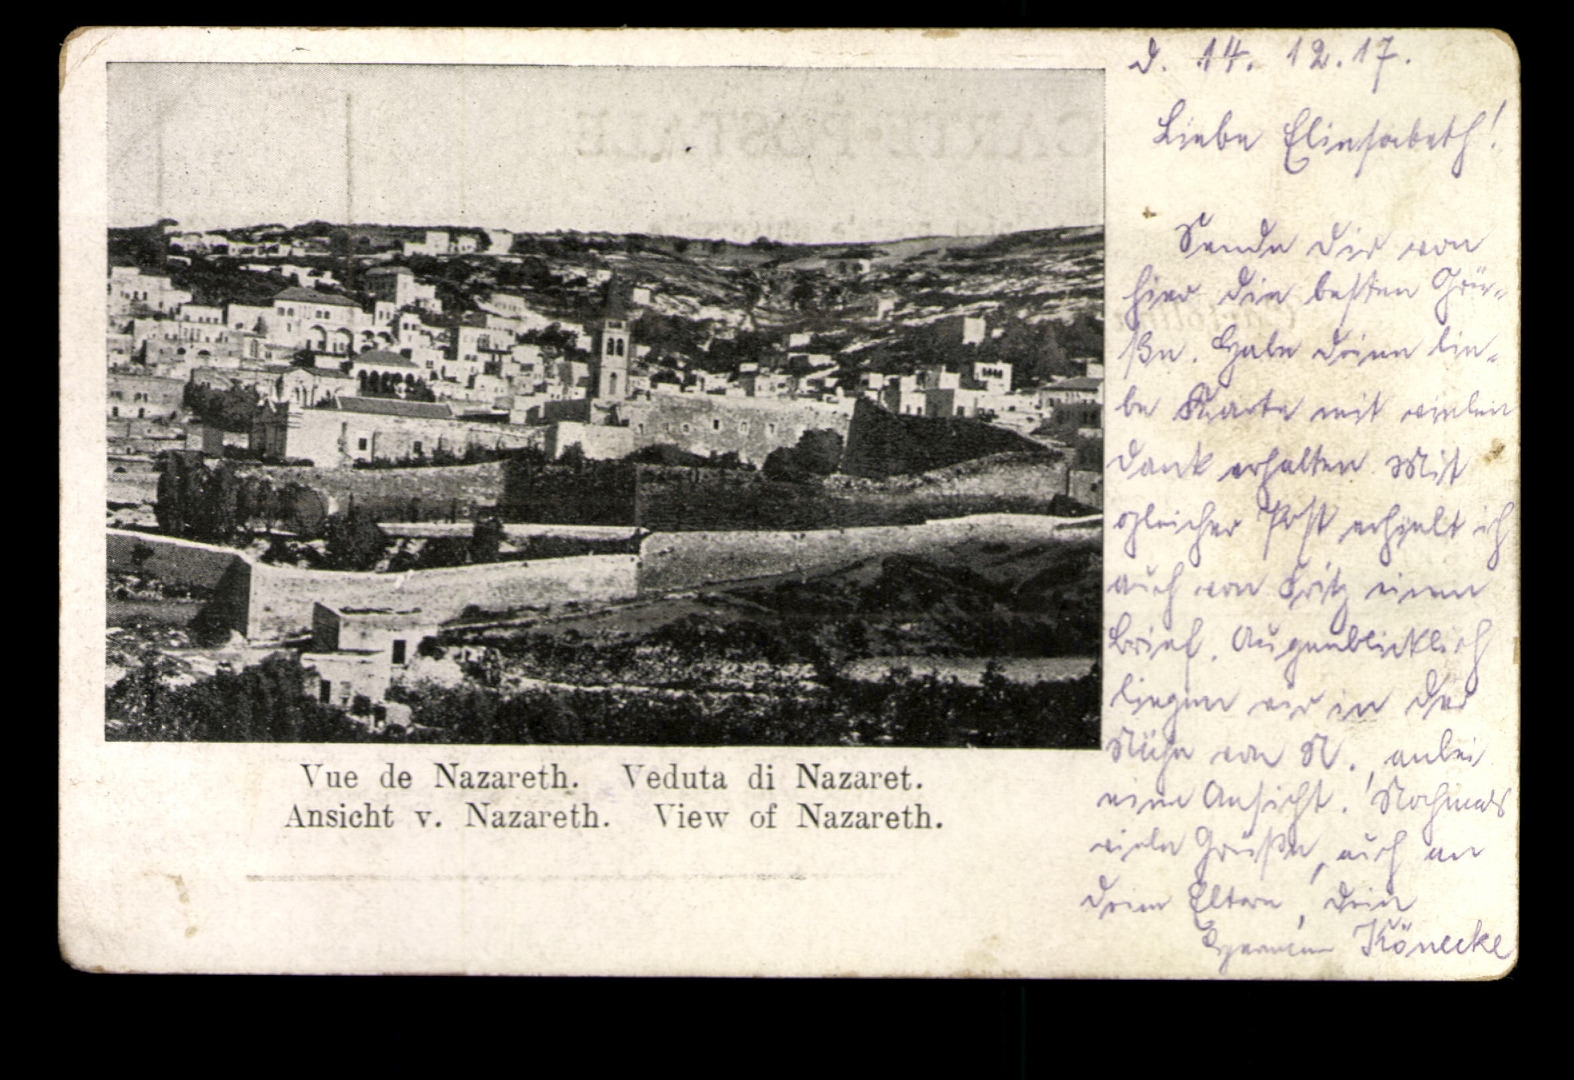 Vue de Nazareth. Veduta di Nazaret.
Ansicht v. Nazareth. View of Nazareth.
d. 14. 12. 17.
Liebe Elisabeth!
Sende Dir von
hier die besten Grü-
ße. Habe deine lie-
be Karte mit vielen
Dank erhalten. Mit
gleicher Post erhielt ich
auch von Fritz einen
Brief. Augenblicklich
liegen wir in der
Nähe von N., anbei
eine Ansicht. Nochmals
viele Grüße, auch an
deine Eltern, dein
Hermann Könecke
CARTE-POSTALE